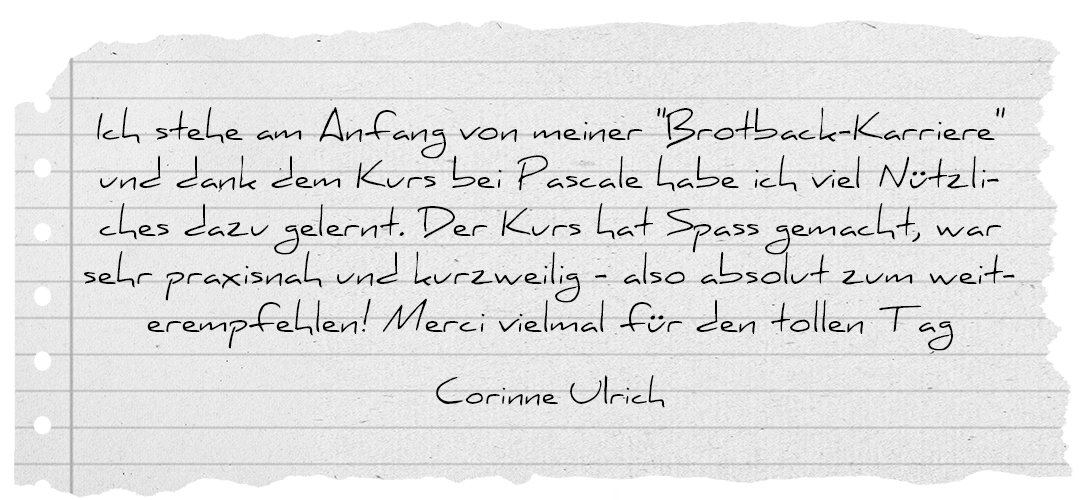 Ich stehe am Anfang von meiner "Brotback-Karriere"
und dank dem Kurs bei Pascale habe ich viel Nützli-
ches dazu gelernt. Der Kurs hat Spass gemacht, war
sehr praxisnah und kurzweilig - also absolut zum weit-
erempfehlen! Merci vielmal für den tollen Tag
Corinne Ulrich